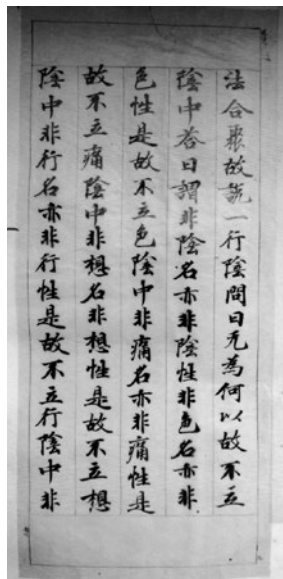 法合聚故說一行陰問曰无為何以故不立
陰中荅曰謂非陰名亦非陰性非色名亦非
色性是故不立色陰中非痛名亦非痛性是
故不立痛陰中非想名非想性是故不立想
陰中非行名亦非行性是故不立行陰中非